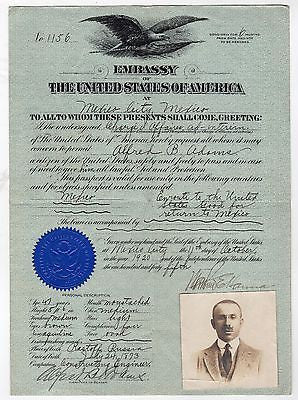 No 1156
GOOD ONLY FOR 6 MONTHS
FROM DATE UNLESS
EMBASSY
OF
THE UNITED STATES OF AMERICA
AT
Mexico City, Mexico
TO ALL TO WHOM THESE PRESENTS SHALL COME, GREETING:
I, the undersigned, Chargé d'Affaires, ad interim
of the United States of America, hereby request all whom it may
concern to permit Alfred B. Adams
a citizen of the United States, safely and freely to pass and in case
of need to give him all lawful Aid and Protection.
This passport is valid for use only in the following countries
and for objects named unless amended
Mexico enroute to the United
States. Good for
return to Mexico
The bearer is accompanied by
Given under my hand and the Seal of the Embassy of the United States
at Mexico City the day of October
in the year 1920 and of the Independence of the United States
the one hundred and forty fifth
PERSONAL DESCRIPTION
Age 47 Mouth moustached
Chin medium
Forehead medium Hair
Eyes brown Complexion fair
Nose Face
Place of birth Rastoff Russia
Date of birth July 24, 1873
Occupation Constructing Engineer